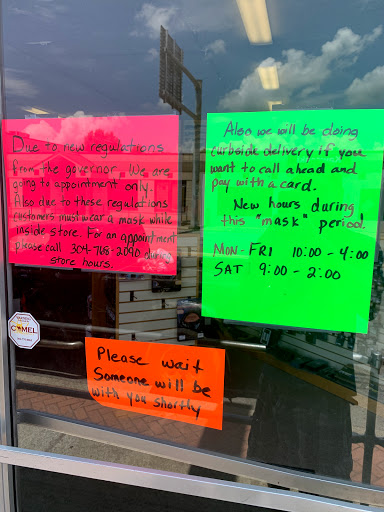 Due to new regulations
from the governor. We are
going to appointment only.
Also due to these regulations
customers must wear a mask while
inside store. For an appointment
please call 304-768-2090 during
store hours.
Also we will be doing
curbside delivery if you
want to call ahead and
pay with a card.
New hours during
this "mask" period!
MON-FRI 10:00-4:00
SAT 9:00-2:00
CAMEL
Please wait
Someone will be
with you shortly